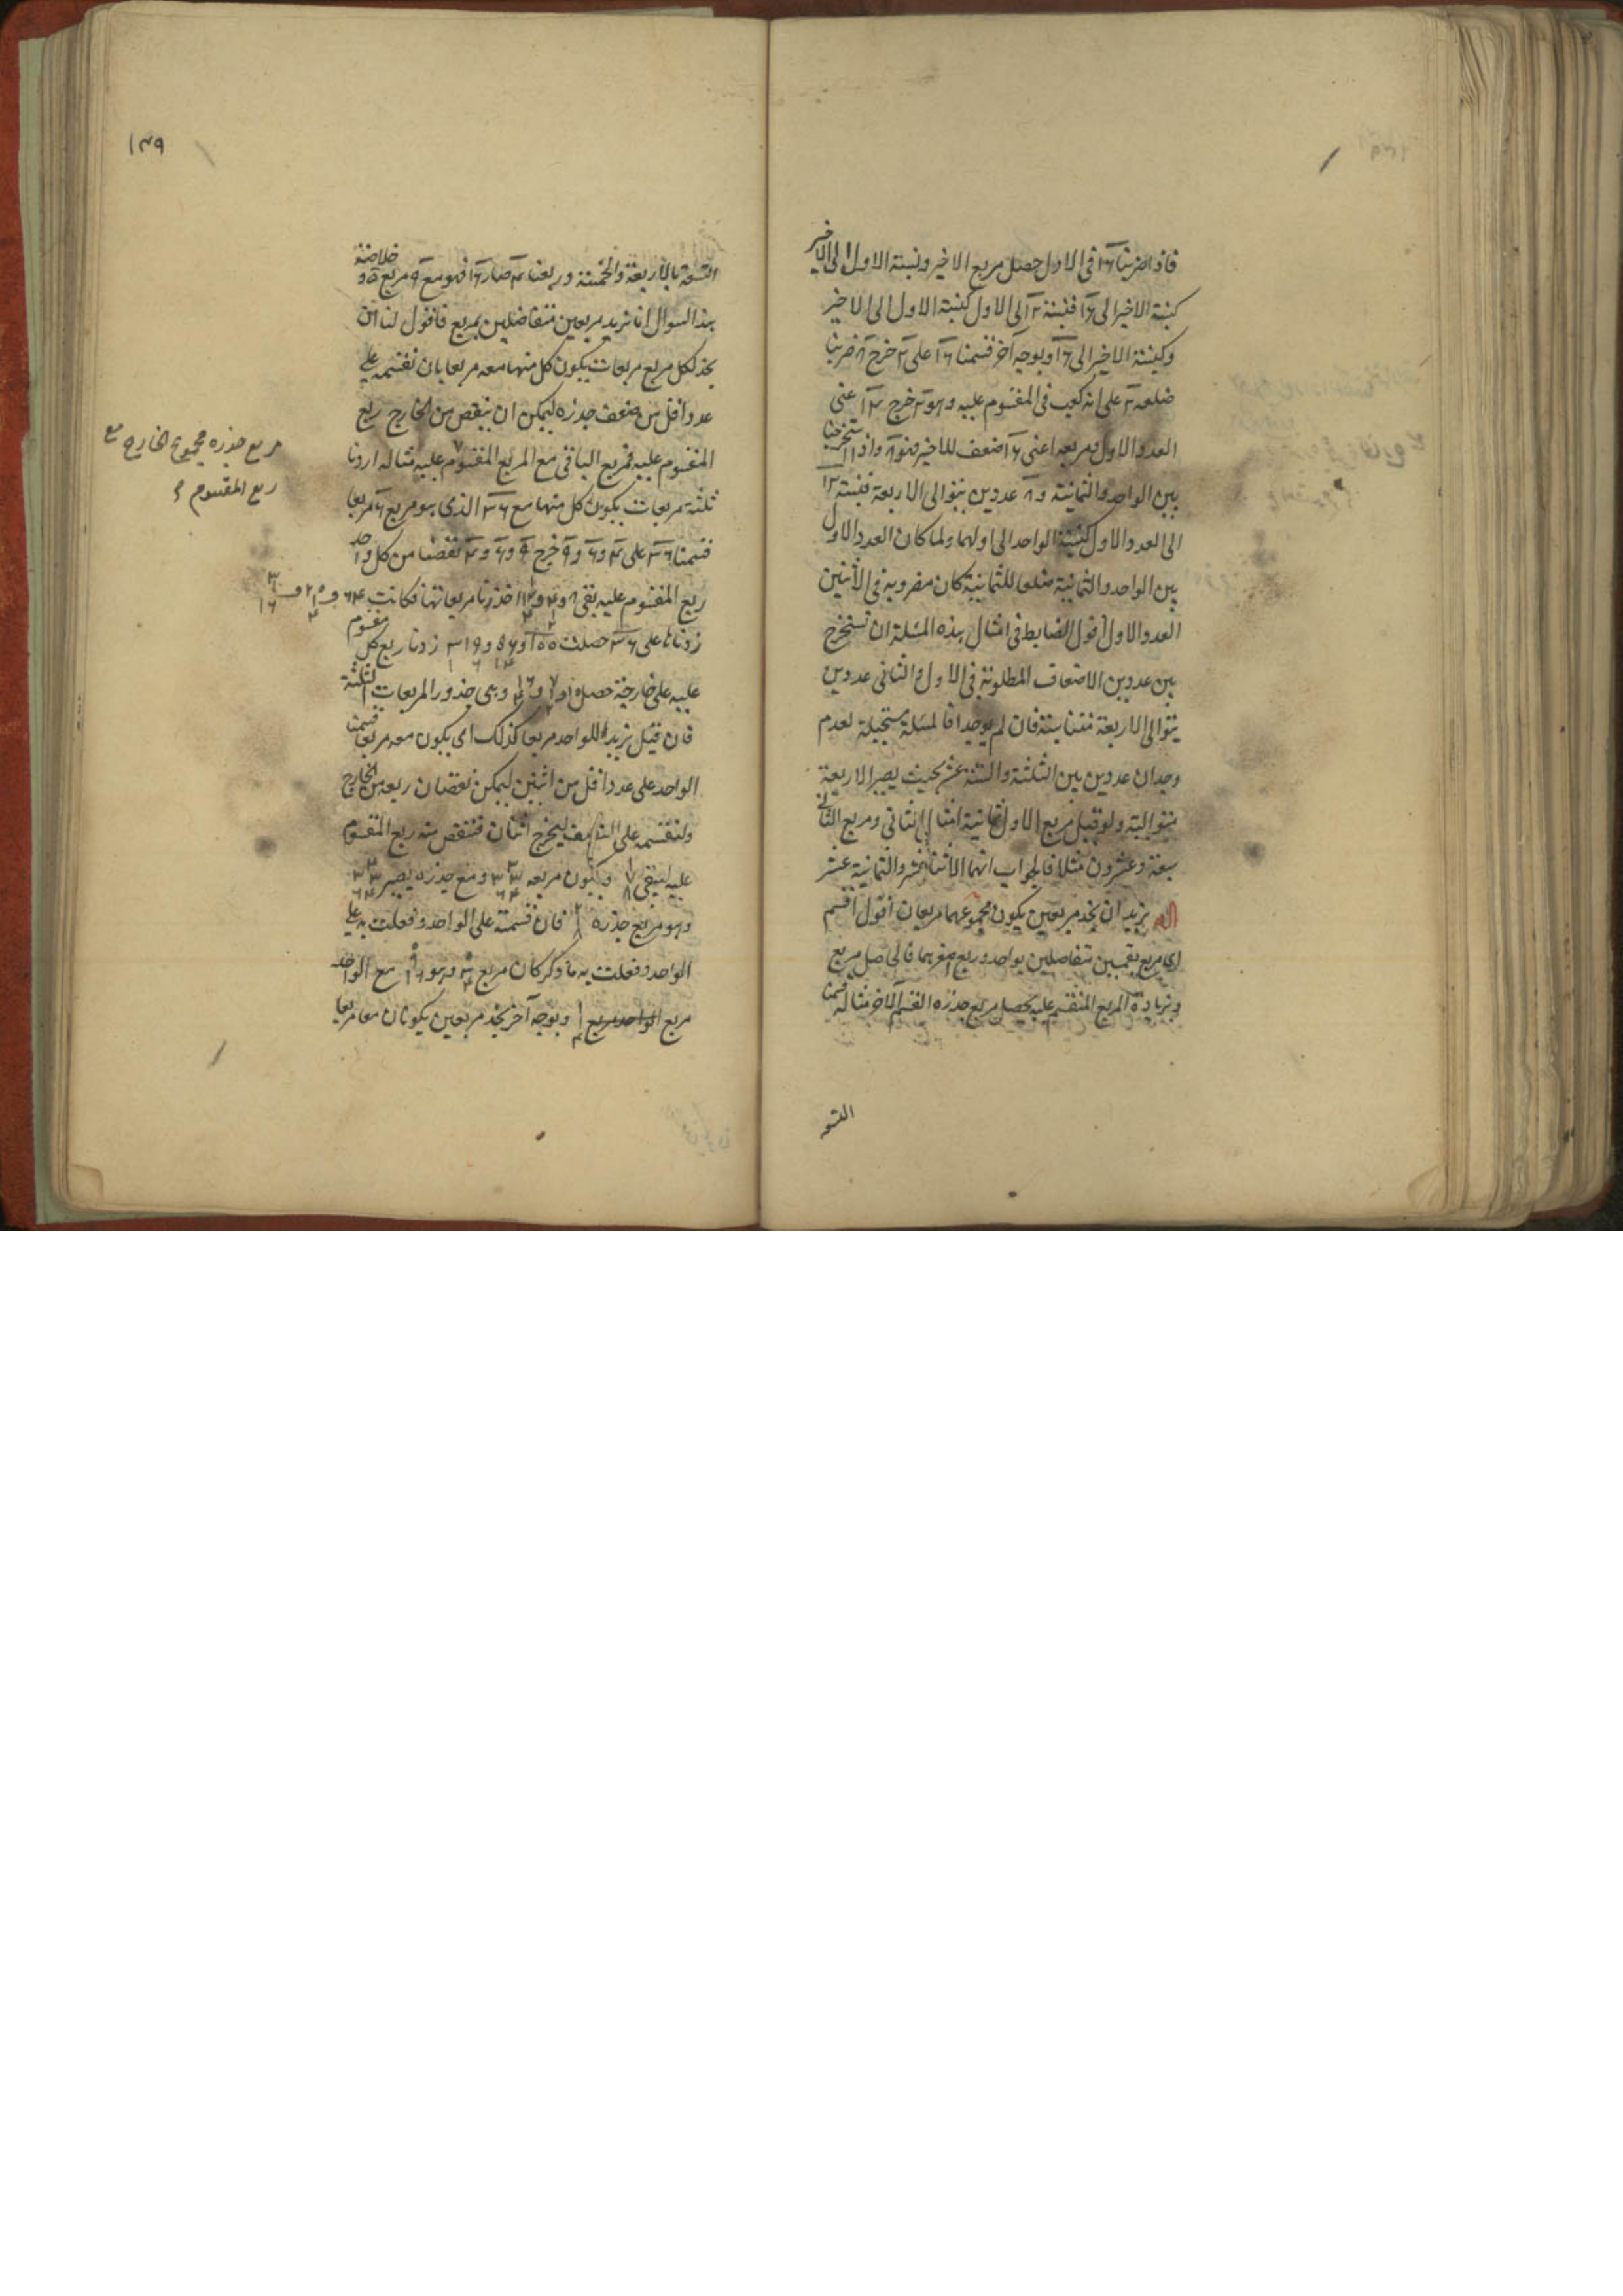 فاذا ضربنا ١٦ فى الاول حصل مربع الاخير ونسبة الاول الى الاخير
كنسبة الاخير الى ١٦ فنسبة ٢ الى الاول كنسبة الاول الى الاخير
وكنسبة الاخير الى ١٦ وبوجه آخر قسمنا ١٦ على ٢ خرج ٨ ضربنا
ضلعه ٢ على انه كعب فى المقسوم عليه وهو ٢ خرج ٤ اعنى
العدد الاول فمربعه اعنى ١٦ ضعف للاخير فهو ٨ واذا استخرجنا
بين الواحد والثمانية و٨ عددين يتوالى الاربعة فنسبة ٢
الى العدد الاول كنسبة الواحد الى اولهما ولما كان العدد الاول
بين الواحد والثمانية ضلعا للثمانية كان مضروبه فى الاثنين
العدد الاول اقول الضابط فى امثال هذه المسئلة ان تستخرج
بين عددين الاضعاف المطلوبة فى الاول والثانى عددين
يتوالى الاربعة متناسبة فان لم يوجدا فالمسئلة مستحيلة لعدم
وجدان عددين بين الثلثة والستة عشر بحيث يصير الاربعة
متوالية ولو قيل مربع الاول ثمانية امثال الثانى ومربع الثانى
سبعة وعشرون مثلا فالجواب انهما الاثنا عشر والثمانية عشر
نريد ان نجد مربعين يكون مجموعهما مربعا ن اقول اقسم
اى مربع بقسمين متفاضلين بواحد وربع اصغرهما فالحاصل مربع
وبزيادة المربع المنقسم عليه يحصل مربع جذره القسم الآخر مثاله قسمنا
التسعة
١٣٩
التسعة بالاربعة والخمسة وربعنا ٤ صار ١٦ فهو مع ٩ مربع ٥ و خلاصة
هذا السوال انا نريد مربعين متفاضلين بمربع فاقول لنا ان
نجد لكل مربع مربعات يكون كل منها معه مربعا بان نقسمه على
عدد اقل من ضعف جذره ليمكن ان ينقص من الخارج ربع
المقسوم عليه فمربع الباقى مع المربع المقسوم عليه مثاله اردنا
ثلثة مربعات يكون كل منها مع ٣٦ الذى هو مربع ٦ مربعا
قسمنا ٣٦ على ٤ و ٦ و ٩ خرج ٩ و ٦ و ٤ نقصنا من كل واحد
ربع المقسوم عليه بقى ٨ و ٤ و ١ اخذنا مربعاتها فكانت ٦٤ و ٢٠ و ٣
زدناها على ٣٦ حصلت ١٠٠ و ٥٦ و ٣٩ زدنا ربع كل مقسوم
عليه على خارجة حصل ١٠ و ٧ و ٦ وهى جذور المربعات الثلثة
فان قيل نريد للواحد مربعا كذلك اى يكون معه مربعا قسمنا
الواحد على عدد اقل من اثنين ليمكن نقصان ربعه من الخارج
ولنقسمه على النصف ليخرج اثنان فننقص منه ربع المقسوم
عليه ليبقى ١ ٧ ٨ ويكون مربعه ٣ ٣٣ ٦٤ ومع جذره يصير ٤ ٣٣ ٦٤
وهو مربع جذره ٢ ١ ٨ فان قسمته على الواحد وفعلت به على
الواحد وفعلت به ما ذكر كان مربع ٣ ٤ وهو ٩ ١٦ مع الواحد
مربع ١ ١ ٤ وبوجه آخر نجد مربعين يكونان معا مربعا
مربع جذره مجموع الخارج مع
ربع المقسوم